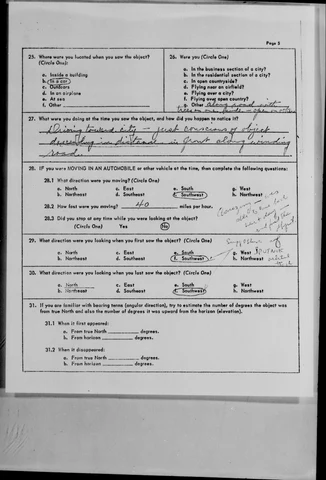 Page 5
25. Where were you located when you saw the object?
(Circle One):
a. Inside a building
b. In a car
c. Outdoors
d. In an airplane
e. At sea
f. Other
26. Were you (Circle One)
a. In the business section of a city?
b. In the residential section of a city?
c. In open countryside?
d. Flying near an airfield?
e. Flying over a city?
f. Flying over open country?
g. Other along road with
trees on one side - open on other
27. What were you doing at the time you saw the object, and how did you happen to notice it?
Driving toward city - just conscious of object
descending in distance in front along winding
road.
28. IF you were MOVING IN AN AUTOMOBILE or other vehicle at the time, then complete the following questions:
28.1 What direction were you moving? (Circle One)
a. North c. East e. South g. West
b. Northeast d. Southeast f. Southwest h. Northwest
28.2 How fast were you moving? 40 miles per hour.
28.3 Did you stop at any time while you were looking at the object?
(Circle One) Yes No
29. What direction were you looking when you first saw the object? (Circle One)
a. North c. East e. South g. West
b. Northeast d. Southeast f. Southwest h. Northwest
30. What direction were you looking when you last saw the object? (Circle One)
a. North c. East e. South g. West
b. Northeast d. Southeast f. Southwest h. Northwest
31. If you are familiar with bearing terms (angular direction), try to estimate the number of degrees the object was
from true North and also the number of degrees it was upward from the horizon (elevation).
31.1 When it first appeared:
a. From true North degrees.
b. From horizon degrees.
31.2 When it disappeared:
a. From true North degrees.
b. From horizon degrees.